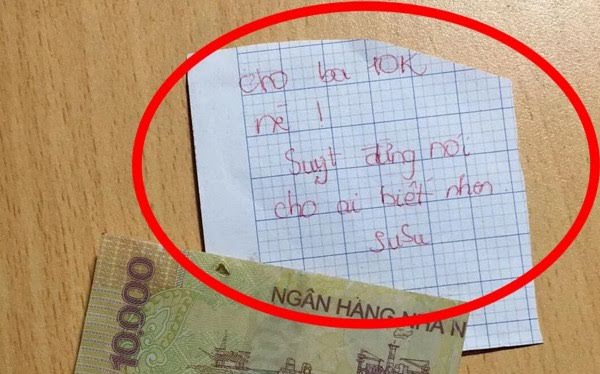 cho ba 10K
nè !
Suỵt đừng nói
cho ai biết nhen
SuSu
10000
NGÂN HÀNG NHÀ N